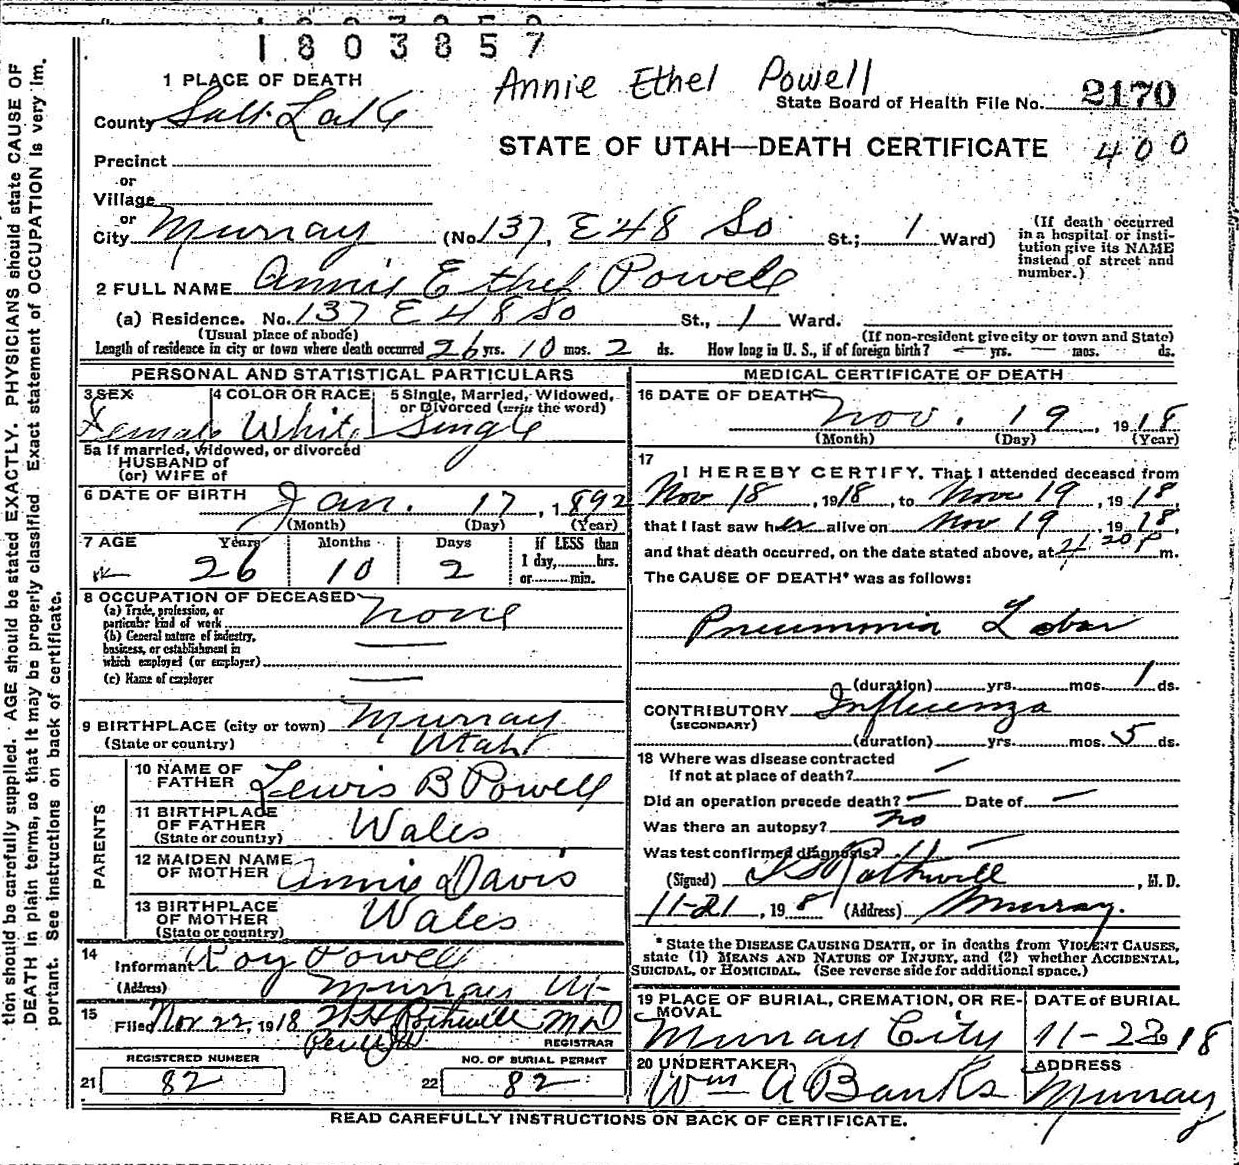 1803857
Annie Ethel Powell
State Board of Health File No. 2170
STATE OF UTAH—DEATH CERTIFICATE 400
1 PLACE OF DEATH
County Salt Lake
Precinct
or
Village
or
City Murray (No 137, E 48 So St.; 1 Ward)
(If death occurred in a hospital or institution give its NAME instead of street and number.)
2 FULL NAME Annie Ethel Powell
(a) Residence. No. 137 E 48 So St., 1 Ward.
(Usual place of abode) (If non-resident give city or town and State)
Length of residence in city or town where death occurred 26 yrs. 10 mos. 2 ds. How long in U. S., if of foreign birth? — yrs. — mos. ds.
PERSONAL AND STATISTICAL PARTICULARS
3 SEX Female
4 COLOR OR RACE White
5 Single, Married, Widowed, or Divorced (write the word) Single
5a If married, widowed, or divorced
HUSBAND of
(or) WIFE of
6 DATE OF BIRTH Jan. 17, 1892
(Month) (Day) (Year)
7 AGE Years Months Days If LESS than
1 day, hrs.
or min.
26 10 2
8 OCCUPATION OF DECEASED none
(a) Trade, profession, or particular kind of work
(b) General nature of industry, business, or establishment in which employed (or employer) —
(c) Name of employer —
9 BIRTHPLACE (city or town) Murray
(State or country) Utah
PARENTS
10 NAME OF FATHER Lewis B Powell
11 BIRTHPLACE OF FATHER (State or country) Wales
12 MAIDEN NAME OF MOTHER Annie Davis
13 BIRTHPLACE OF MOTHER (State or country) Wales
14 Informant Roy Powell
(Address) Murray Ut
15 Filed Nov 22, 1918 Rothwell MD
REGISTRAR
REGISTERED NUMBER
21 82
NO. OF BURIAL PERMIT
22 82
MEDICAL CERTIFICATE OF DEATH
16 DATE OF DEATH
Nov. 19, 1918
(Month) (Day) (Year)
17
I HEREBY CERTIFY, That I attended deceased from
Nov 18, 1918, to Nov 19, 1918,
that I last saw her alive on Nov 19, 1918,
and that death occurred, on the date stated above, at 20 P m.
The CAUSE OF DEATH* was as follows:
Pneumonia Lobar
(duration) yrs. mos. 1 ds.
CONTRIBUTORY Influenza
(SECONDARY)
(duration) yrs. mos. 5 ds.
18 Where was disease contracted
if not at place of death? —
Did an operation precede death? — Date of —
Was there an autopsy? no
Was test confirmed diagnosis? —
(Signed) Rothwell, M. D.
11-21, 1918 (Address) Murray.
* State the DISEASE CAUSING DEATH, or in deaths from VIOLENT CAUSES, state (1) MEANS AND NATURE OF INJURY, and (2) whether ACCIDENTAL, SUICIDAL, or HOMICIDAL. (See reverse side for additional space.)
19 PLACE OF BURIAL, CREMATION, OR REMOVAL
Murray City
DATE of BURIAL
11-22 18
20 UNDERTAKER
Wm A Banks
ADDRESS
Murray
READ CAREFULLY INSTRUCTIONS ON BACK OF CERTIFICATE.
tion should be carefully supplied. AGE should be stated EXACTLY. PHYSICIANS should state CAUSE OF
DEATH in plain terms, so that it may be properly classified. Exact statement of OCCUPATION is very im-
portant. See instructions on back of certificate.